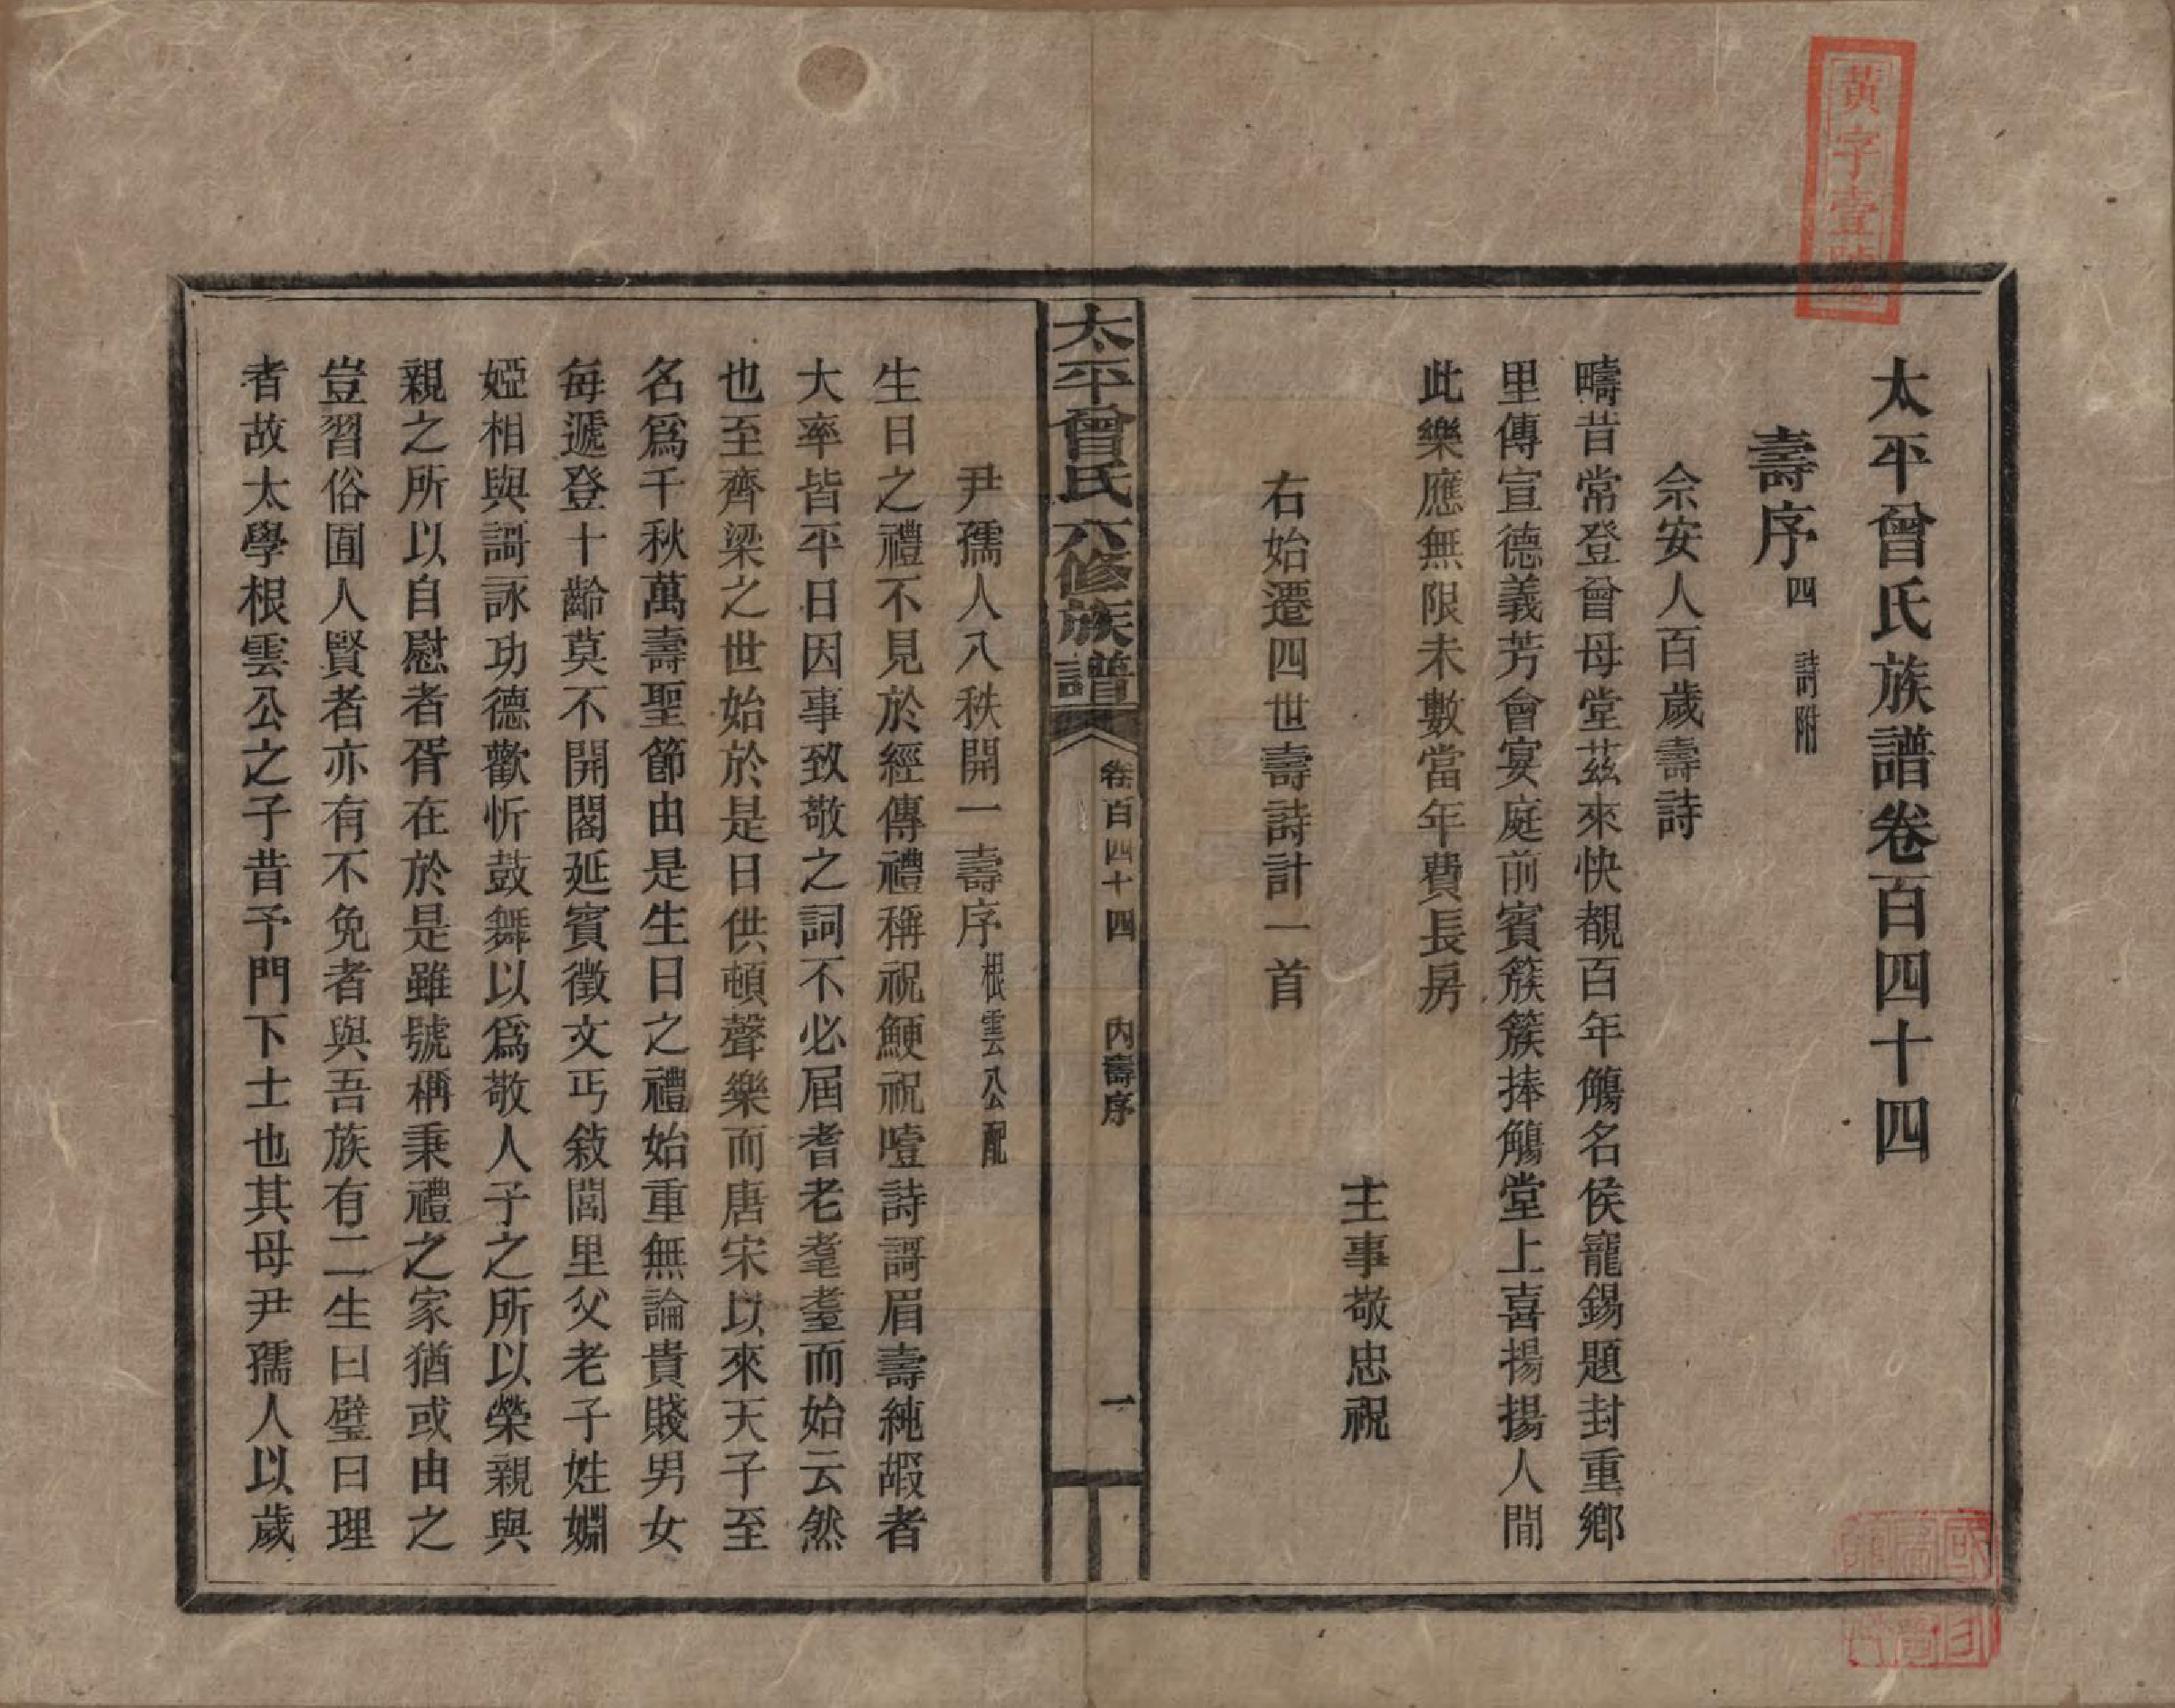 黃字壹號
太平曾氏族譜卷百四十四
壽序四 詩附
佘安人百歲壽詩
疇昔常登曾母堂茲來快覩百年觴名侯寵錫題封重鄉
里傳宣德義芳會宴庭前賓簇簇捧觴堂上喜揚揚人間
此樂應無限未數當年費長房
主事敬忠祝
右始遷四世壽詩計一首
太平曾氏六修族譜
卷百四十四
內壽序
一
尹孺人八秩開一壽序根雲公配
生日之禮不見於經傳禮稱祝鯁祝噎詩謌眉壽純嘏者
大率皆平日因事致敬之詞不必屆耆老耄耋而始云然
也至齊梁之世始於是日供頓聲樂而唐宋以來天子至
名爲千秋萬壽聖節由是生日之禮始重無論貴賤男女
每遞登十齡莫不開閣延賓徵文丐敍閭里父老子姓婣
婭相與謌詠功德歡忻鼓舞以爲敬人子之所以榮親與
親之所以自慰者胥在於是雖號稱秉禮之家猶或由之
豈習俗囿人賢者亦有不免者與吾族有二生曰璧曰理
者故太學根雲公之子昔予門下士也其母尹孺人以歲